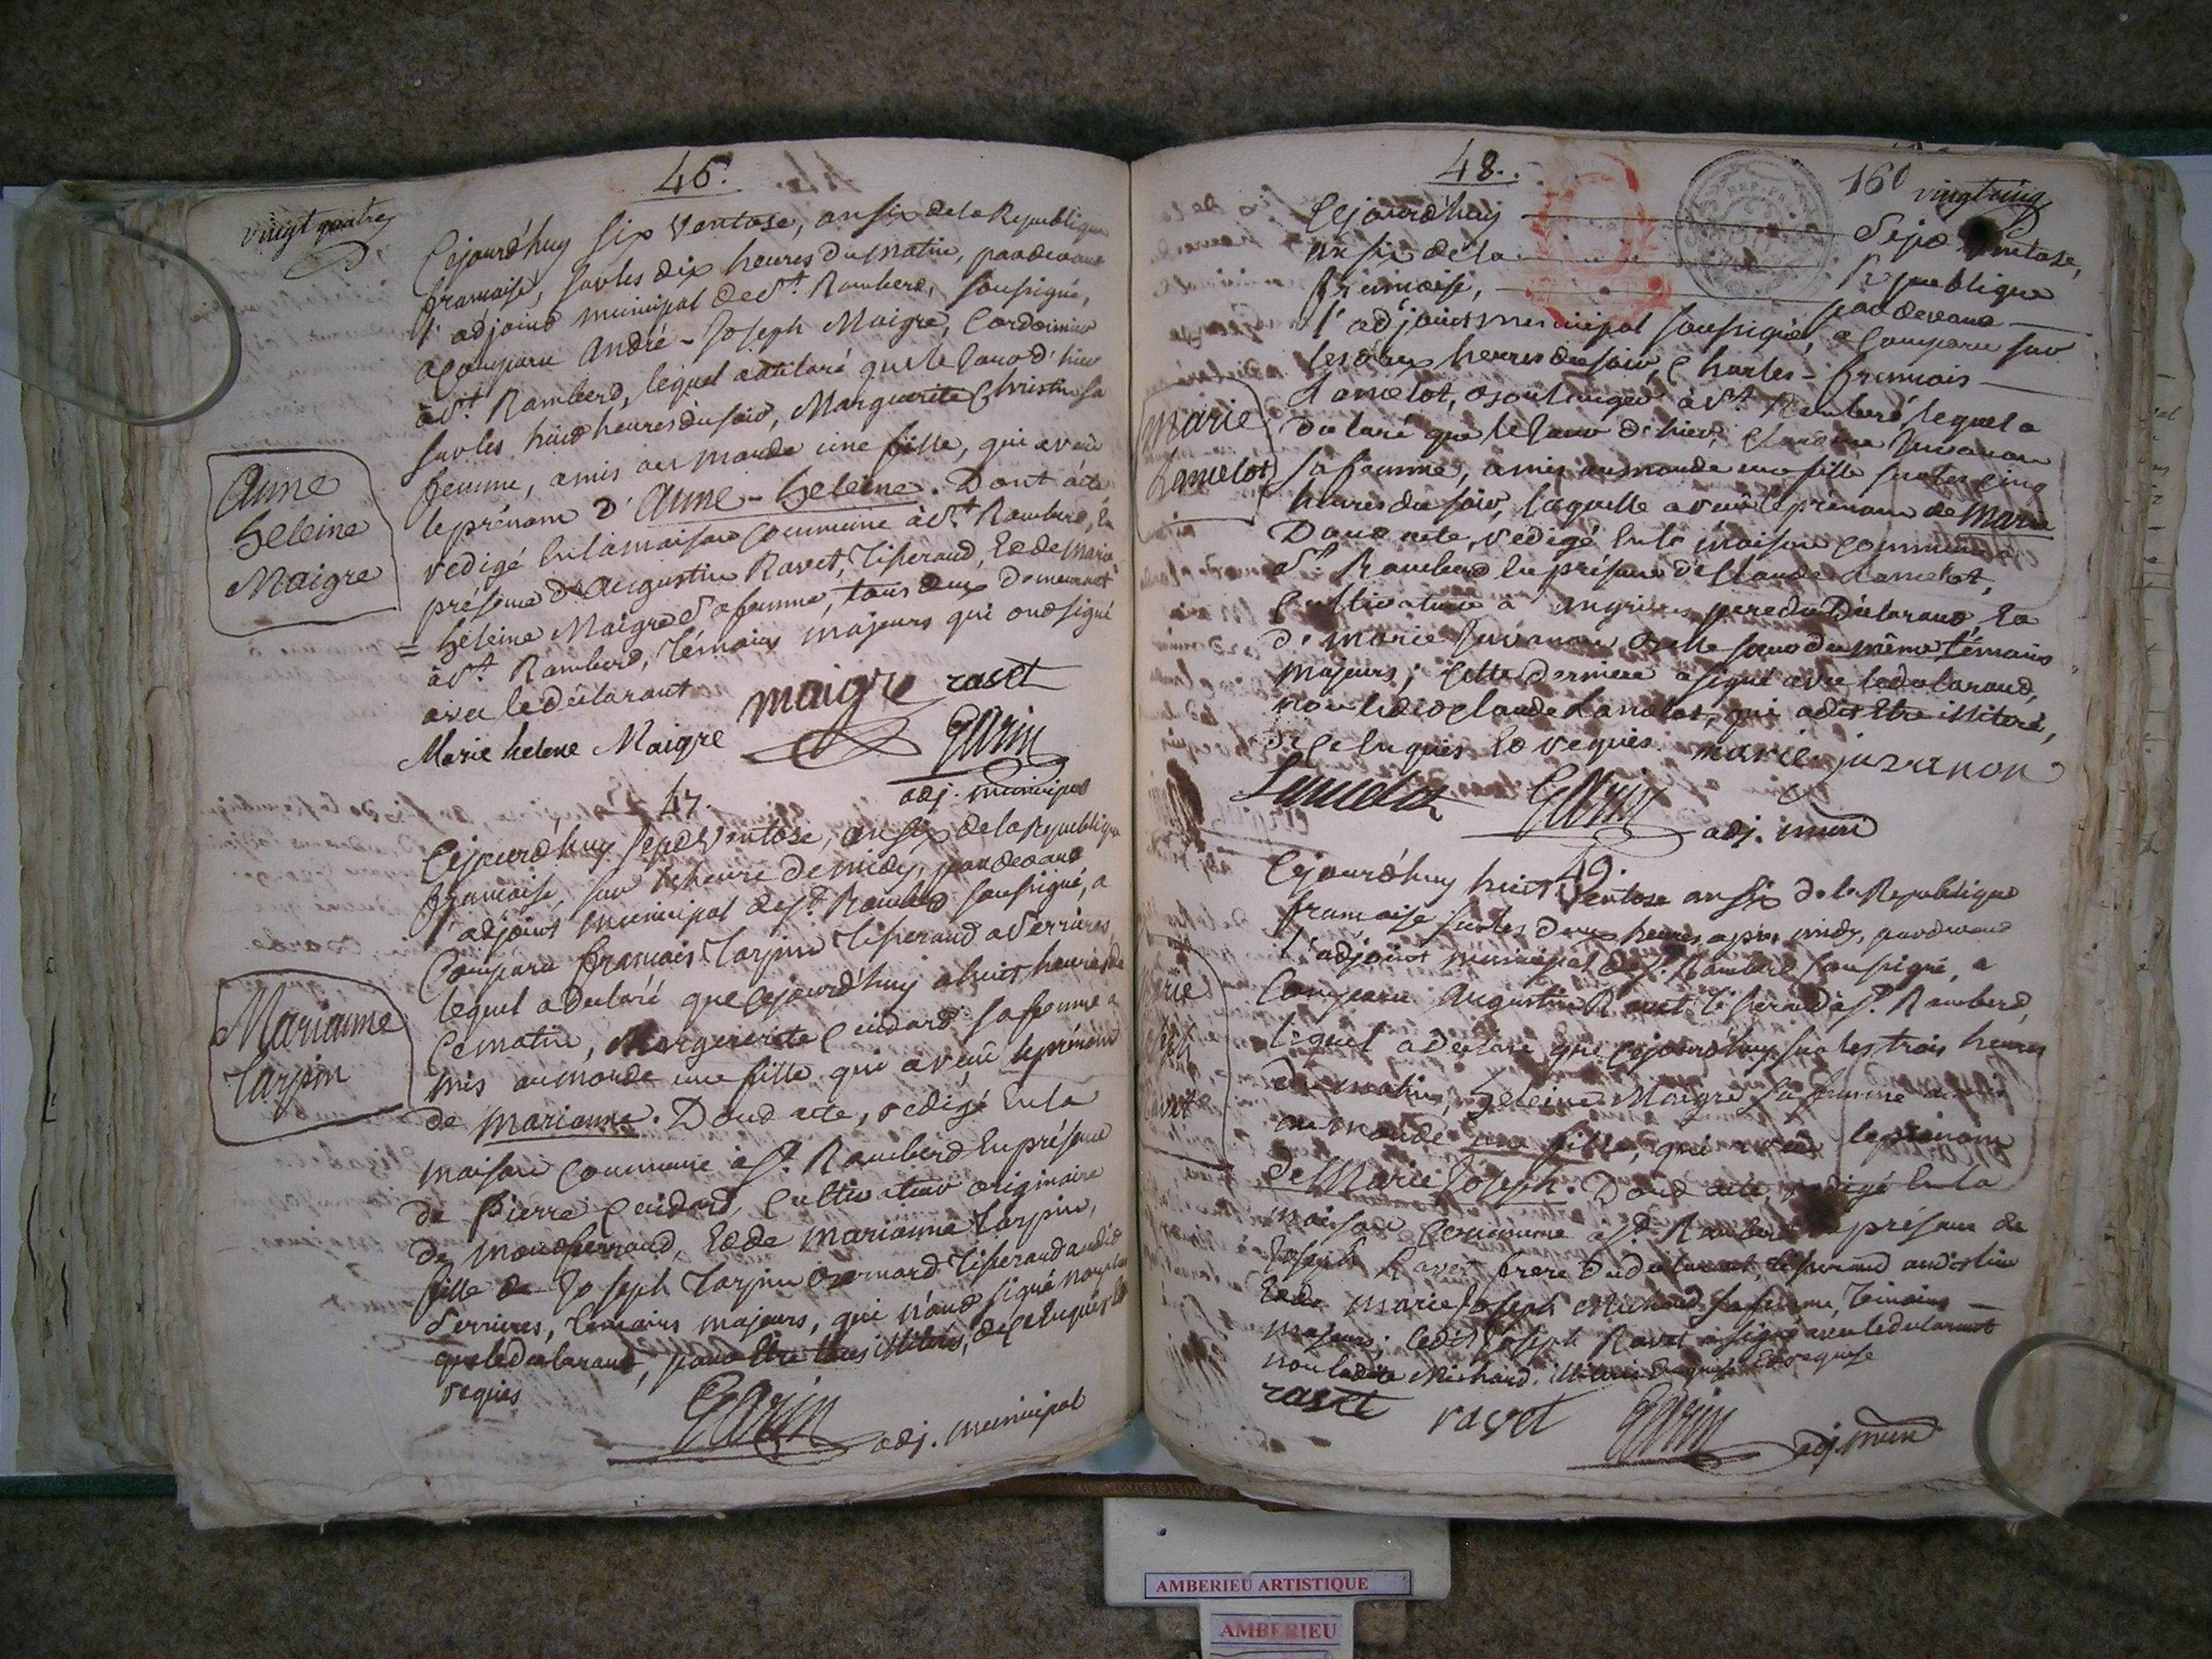 vingt quatre
46.
Cejourd'huy six Ventose, an six de la Republique
francaise, sur les dix heures du matin, pardevant
l'adjoint municipal de St. Rambert, soussigné,
a comparu André-Joseph Maigre, Cordonnier
à St. Rambert, lequel a déclaré que le jour d'hier
sur les huit heures du soir, Marguerite Christin sa
femme, a mis au monde une fille, qui a reçu
le prénom d'Anne-heleine. Dont acte
redigé en la maison commune à St. Rambert, en
présence d'Augustin Ravet, Tisserand, et de Marie
= héleine Maigre sa femme, tous deux demeurant
à St. Rambert, témoins majeurs qui ont signé
avec le déclarant
Anne
heleine
Maigre
maigre ravet
Marie helene Maigre
Garin
adj. municipal
47.
Cejourd'huy sept Ventose, an six de la Republique
francaise, sur l'heure de midy, pardevant
l'adjoint municipal de St. Rambert soussigné, a
Comparu francais Tarpin Tisserand a Serrieres,
lequel a déclaré que cejourd'huy a huit heures de
ce matin, Marguerite Cuidard sa femme a
mis au monde une fille qui a reçu le prénom
de marianne. Dont acte, redigé en la
maison commune à St. Rambert en présence
de Pierre Cuidard, Cultivateur originaire
de montferrand, et de marianne Tarpin,
fille de Joseph Tarpin Tisserand audit
Serrieres, témoins majeurs, qui n'ont signé non plus
que le déclarant, pour être tous illiterés, de ce enquis et
requis
Marianne
Tarpin
Garin adj. municipal
48.
160
vingt cinq
Cejourd'huy sept Ventose,
an six de la Republique
francoise, pardevant
l'adjoint municipal soussigné, a comparu sur
les deux heures du soir, Charles-francois
Lancelot, à St. Rambert, lequel a
déclaré que le jour d'hier, Claudine Juvanon
sa femme, a mis au monde une fille sur les cinq
heures du soir, laquelle a reçu le prénom de Marie
Dont acte, redigé en la maison commune à
St. Rambert en présence de Claude Lancelot,
Cultivateur à Angrieres pere du Déclarant, et
de marie Juvanon belle soeur du même témoins
majeurs; cette derniere a signé avec le déclarant,
non ledit Claude Lancelot, qui a dit être illiteré,
de ce enquis et requis. marie juvanon
marie
Lancelot
Lancelot Garin adj. muni
49.
Cejourd'huy huit Ventose an six de la Republique
francaise sur les deux heures après midy, pardevant
l'adjoint municipal de St. Rambert soussigné, a
Comparu Augustin Ravet Tisserand à St. Rambert,
lequel a déclaré que cejourd'huy sur les trois heures
du matin, heleine Maigre sa femme a mis
au monde une fille, qui a reçu le prénom
de Marie Joseph. Dont acte, redigé en la
maison commune à St. Rambert en présence de
Joseph Ravet frere du déclarant, Tisserand audit lieu
et de marie Joseph Michaud sa femme, témoins
majeurs; ledit Joseph Ravet a signé avec le déclarant
non ladite Michaud illiterée enquise et requise
ravet ravet Garin adj. muni
AMBERIEU ARTISTIQUE
AMBERIEU